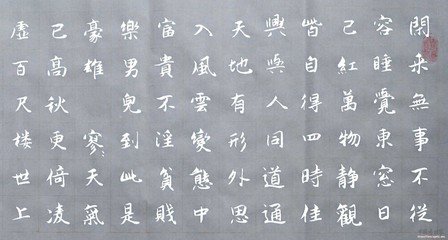 閑來無事不從
容睡覺東窗日
已紅萬物静觀
皆自得四時佳
興與人同道通
天地有形外思
入風雲變態中
富貴不淫貧賤
樂男兒到此是
豪雄 寥〻天氣
已高秋更倚凌
虛百尺楼世上